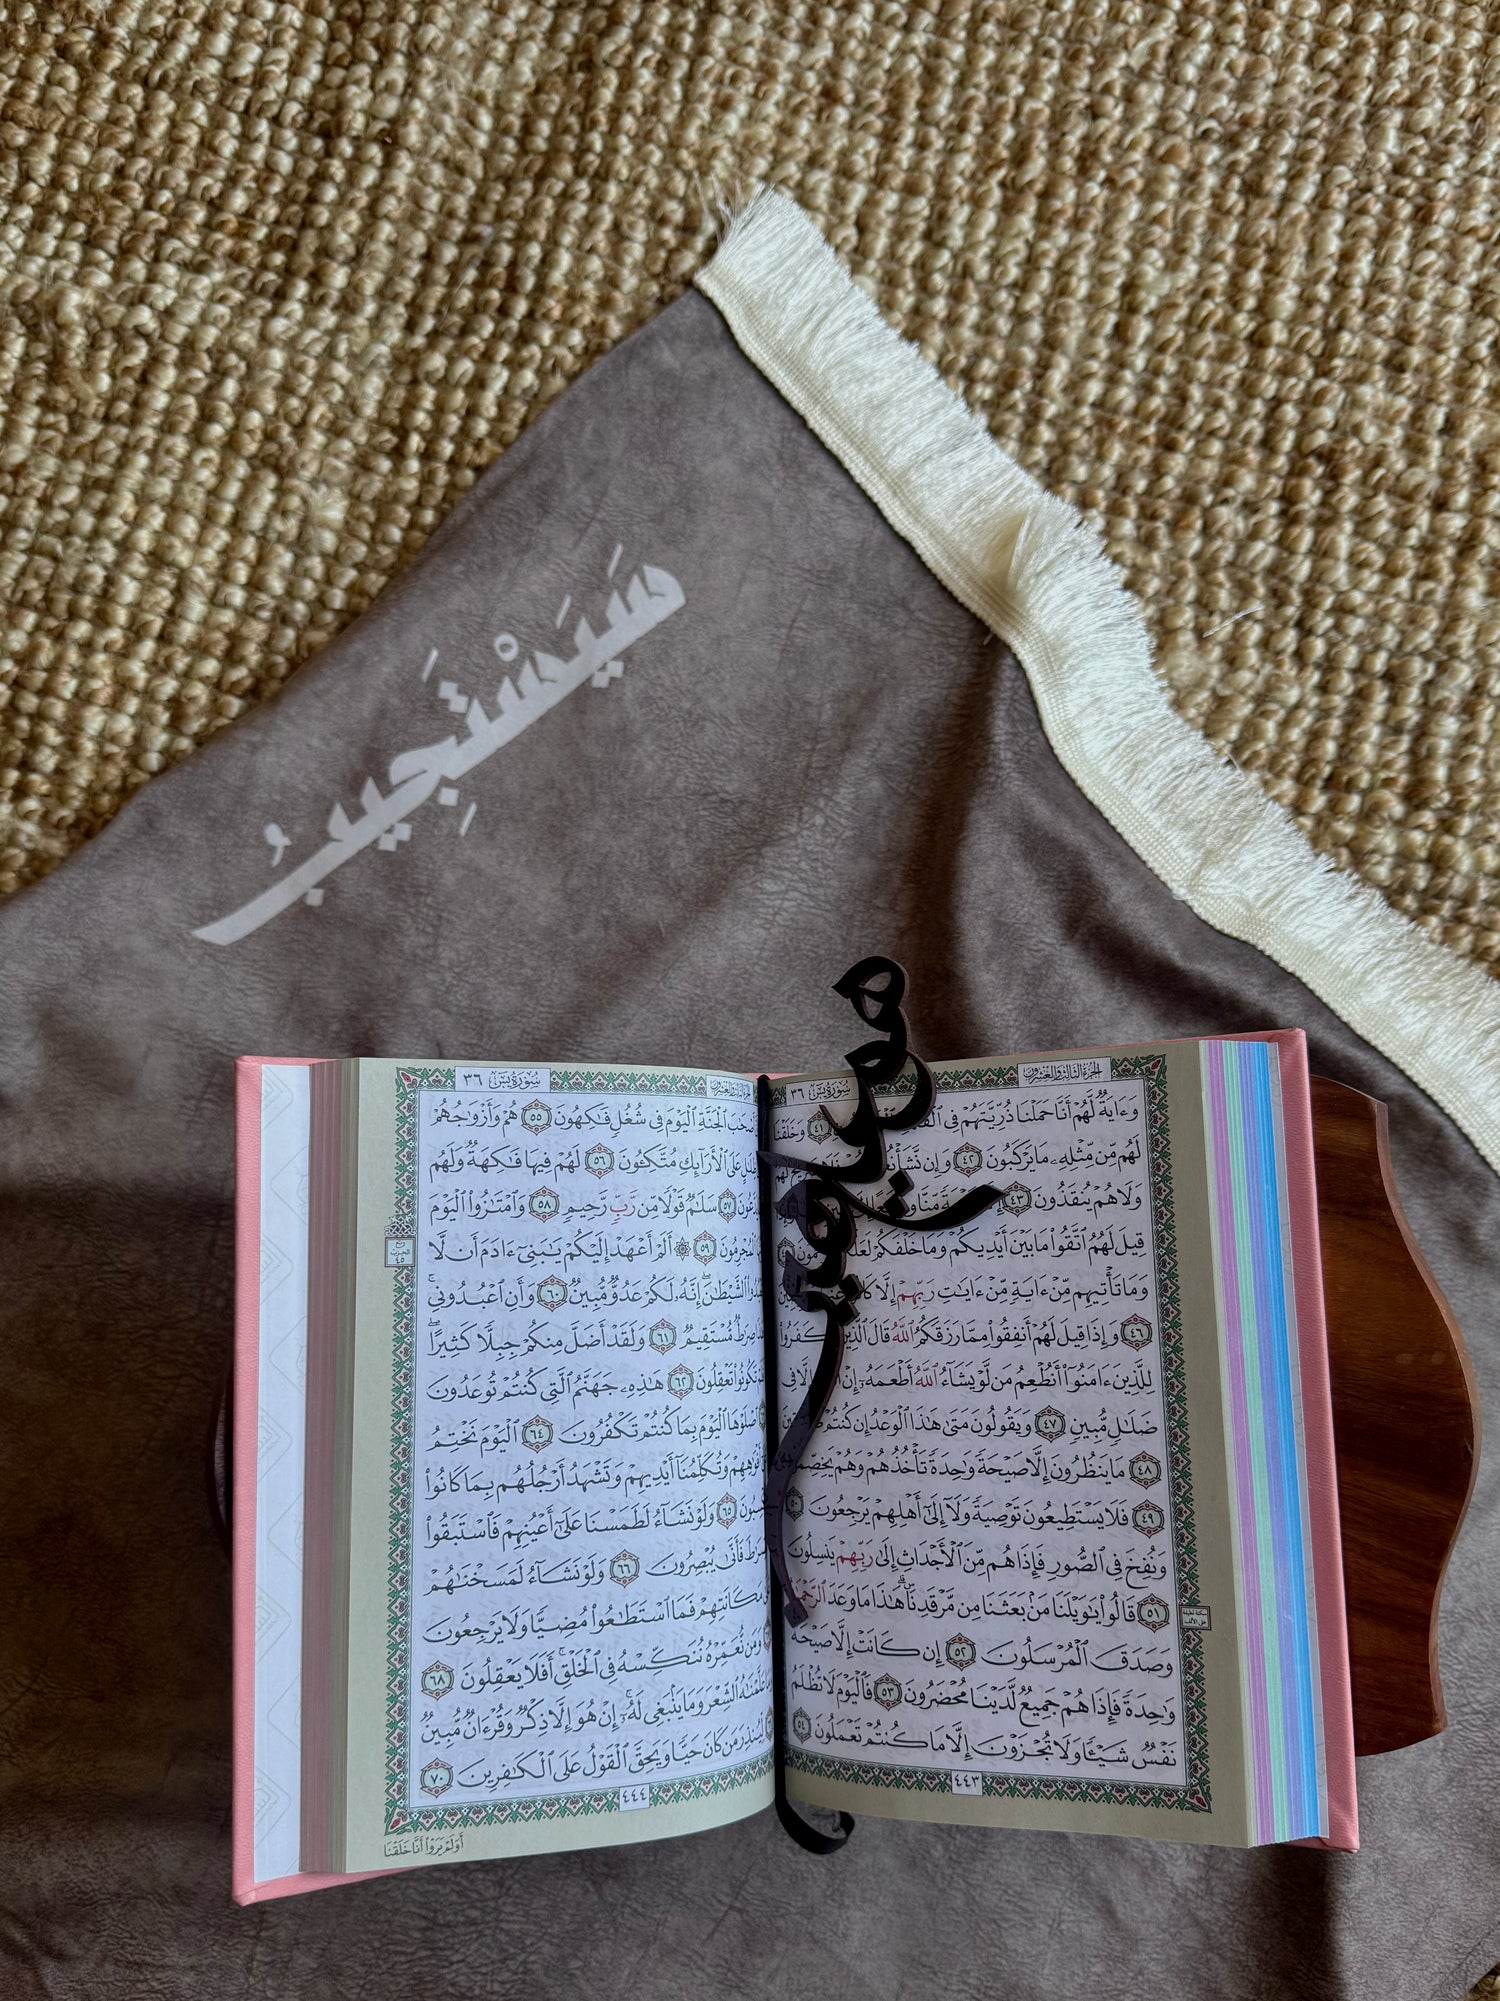 سَيَسْتَجِيبُ
الجزء الثالث والعشرون
سورة يس ٣٦
وَءَايَةٌ لَّهُمْ أَنَّا حَمَلْنَا ذُرِّيَّتَهُمْ فِي ٤١ وَخَلَقْنَا
لَهُم مِّن مِّثْلِهِۦ مَا يَرْكَبُونَ ٤٢ وَإِن نَّشَأْ
وَلَا هُمْ يُنقَذُونَ ٤٣ مِّنَّا
قِيلَ لَهُمُ ٱتَّقُوا۟ مَا بَيْنَ أَيْدِيكُمْ وَمَا خَلْفَكُمْ
وَمَا تَأْتِيهِم مِّنْ ءَايَةٍ مِّنْ ءَايَٰتِ رَبِّهِمْ إِلَّا
٤٦ وَإِذَا قِيلَ لَهُمْ أَنفِقُوا۟ مِمَّا رَزَقَكُمُ ٱللَّهُ قَالَ ٱلَّذِينَ كَفَرُوا۟
لِلَّذِينَ ءَامَنُوٓا۟ أَنُطْعِمُ مَن لَّوْ يَشَآءُ ٱللَّهُ أَطْعَمَهُۥٓ إِنْ إِلَّا فِي
ضَلَٰلٍ مُّبِينٍ ٤٧ وَيَقُولُونَ مَتَىٰ هَٰذَا ٱلْوَعْدُ إِن كُنتُمْ
٤٨ مَا يَنظُرُونَ إِلَّا صَيْحَةً وَٰحِدَةً تَأْخُذُهُمْ وَهُمْ يَخِصِّمُونَ
٤٩ فَلَا يَسْتَطِيعُونَ تَوْصِيَةً وَلَآ إِلَىٰٓ أَهْلِهِمْ يَرْجِعُونَ ٥٠
وَنُفِخَ فِي ٱلصُّورِ فَإِذَا هُم مِّنَ ٱلْأَجْدَاثِ إِلَىٰ رَبِّهِمْ يَنسِلُونَ
٥١ قَالُوا۟ يَٰوَيْلَنَا مَنۢ بَعَثَنَا مِن مَّرْقَدِنَا ۜ هَٰذَا مَا وَعَدَ ٱلرَّحْمَٰنُ
وَصَدَقَ ٱلْمُرْسَلُونَ ٥٢ إِن كَانَتْ إِلَّا صَيْحَةً
وَٰحِدَةً فَإِذَا هُمْ جَمِيعٌ لَّدَيْنَا مُحْضَرُونَ ٥٣ فَٱلْيَوْمَ لَا تُظْلَمُ
نَفْسٌ شَيْـًٔا وَلَا تُجْزَوْنَ إِلَّا مَا كُنتُمْ تَعْمَلُونَ ٥٤
٤٤٣
سورة يس ٣٦
أَصْحَٰبَ ٱلْجَنَّةِ ٱلْيَوْمَ فِي شُغُلٍ فَٰكِهُونَ ٥٥ هُمْ وَأَزْوَٰجُهُمْ
ظِلَٰلٍ عَلَى ٱلْأَرَآئِكِ مُتَّكِـُٔونَ ٥٦ لَهُمْ فِيهَا فَٰكِهَةٌ وَلَهُم
يَدَّعُونَ ٥٧ سَلَٰمٌ قَوْلًا مِّن رَّبٍّ رَّحِيمٍ ٥٨ وَٱمْتَٰزُوا۟ ٱلْيَوْمَ
ٱلْمُجْرِمُونَ ٥٩ ۞ أَلَمْ أَعْهَدْ إِلَيْكُمْ يَٰبَنِيٓ ءَادَمَ أَن لَّا
تَعْبُدُوا۟ ٱلشَّيْطَٰنَ ۖ إِنَّهُۥ لَكُمْ عَدُوٌّ مُّبِينٌ ٦٠ وَأَنِ ٱعْبُدُونِي ۚ
هَٰذَا صِرَٰطٌ مُّسْتَقِيمٌ ٦١ وَلَقَدْ أَضَلَّ مِنكُمْ جِبِلًّا كَثِيرًا ۖ
تَكُونُوا۟ تَعْقِلُونَ ٦٢ هَٰذِهِۦ جَهَنَّمُ ٱلَّتِي كُنتُمْ تُوعَدُونَ
ٱصْلَوْهَا ٱلْيَوْمَ بِمَا كُنتُمْ تَكْفُرُونَ ٦٤ ٱلْيَوْمَ نَخْتِمُ
أَفْوَٰهِهِمْ وَتُكَلِّمُنَآ أَيْدِيهِمْ وَتَشْهَدُ أَرْجُلُهُم بِمَا كَانُوا۟
يَكْسِبُونَ ٦٥ وَلَوْ نَشَآءُ لَطَمَسْنَا عَلَىٰٓ أَعْيُنِهِمْ فَٱسْتَبَقُوا۟
ٱلصِّرَٰطَ فَأَنَّىٰ يُبْصِرُونَ ٦٦ وَلَوْ نَشَآءُ لَمَسَخْنَٰهُمْ
مَكَانَتِهِمْ فَمَا ٱسْتَطَٰعُوا۟ مُضِيًّا وَلَا يَرْجِعُونَ
وَمَن نُّعَمِّرْهُ نُنَكِّسْهُ فِي ٱلْخَلْقِ ۖ أَفَلَا يَعْقِلُونَ ٦٨
وَمَا عَلَّمْنَٰهُ ٱلشِّعْرَ وَمَا يَنۢبَغِي لَهُۥٓ ۚ إِنْ هُوَ إِلَّا ذِكْرٌ وَقُرْءَانٌ مُّبِينٌ
لِّيُنذِرَ مَن كَانَ حَيًّا وَيَحِقَّ ٱلْقَوْلُ عَلَى ٱلْكَٰفِرِينَ ٧٠
٤٤٤
أَوَلَمْ يَرَوْا۟ أَنَّا خَلَقْنَا